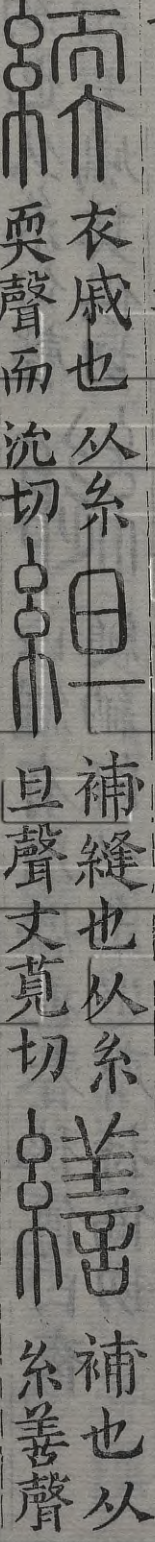 緛
衣戚也从糸
耎聲而沇切
䋎
補縫也从糸
旦聲丈莧切
繕
補也从
糸善聲